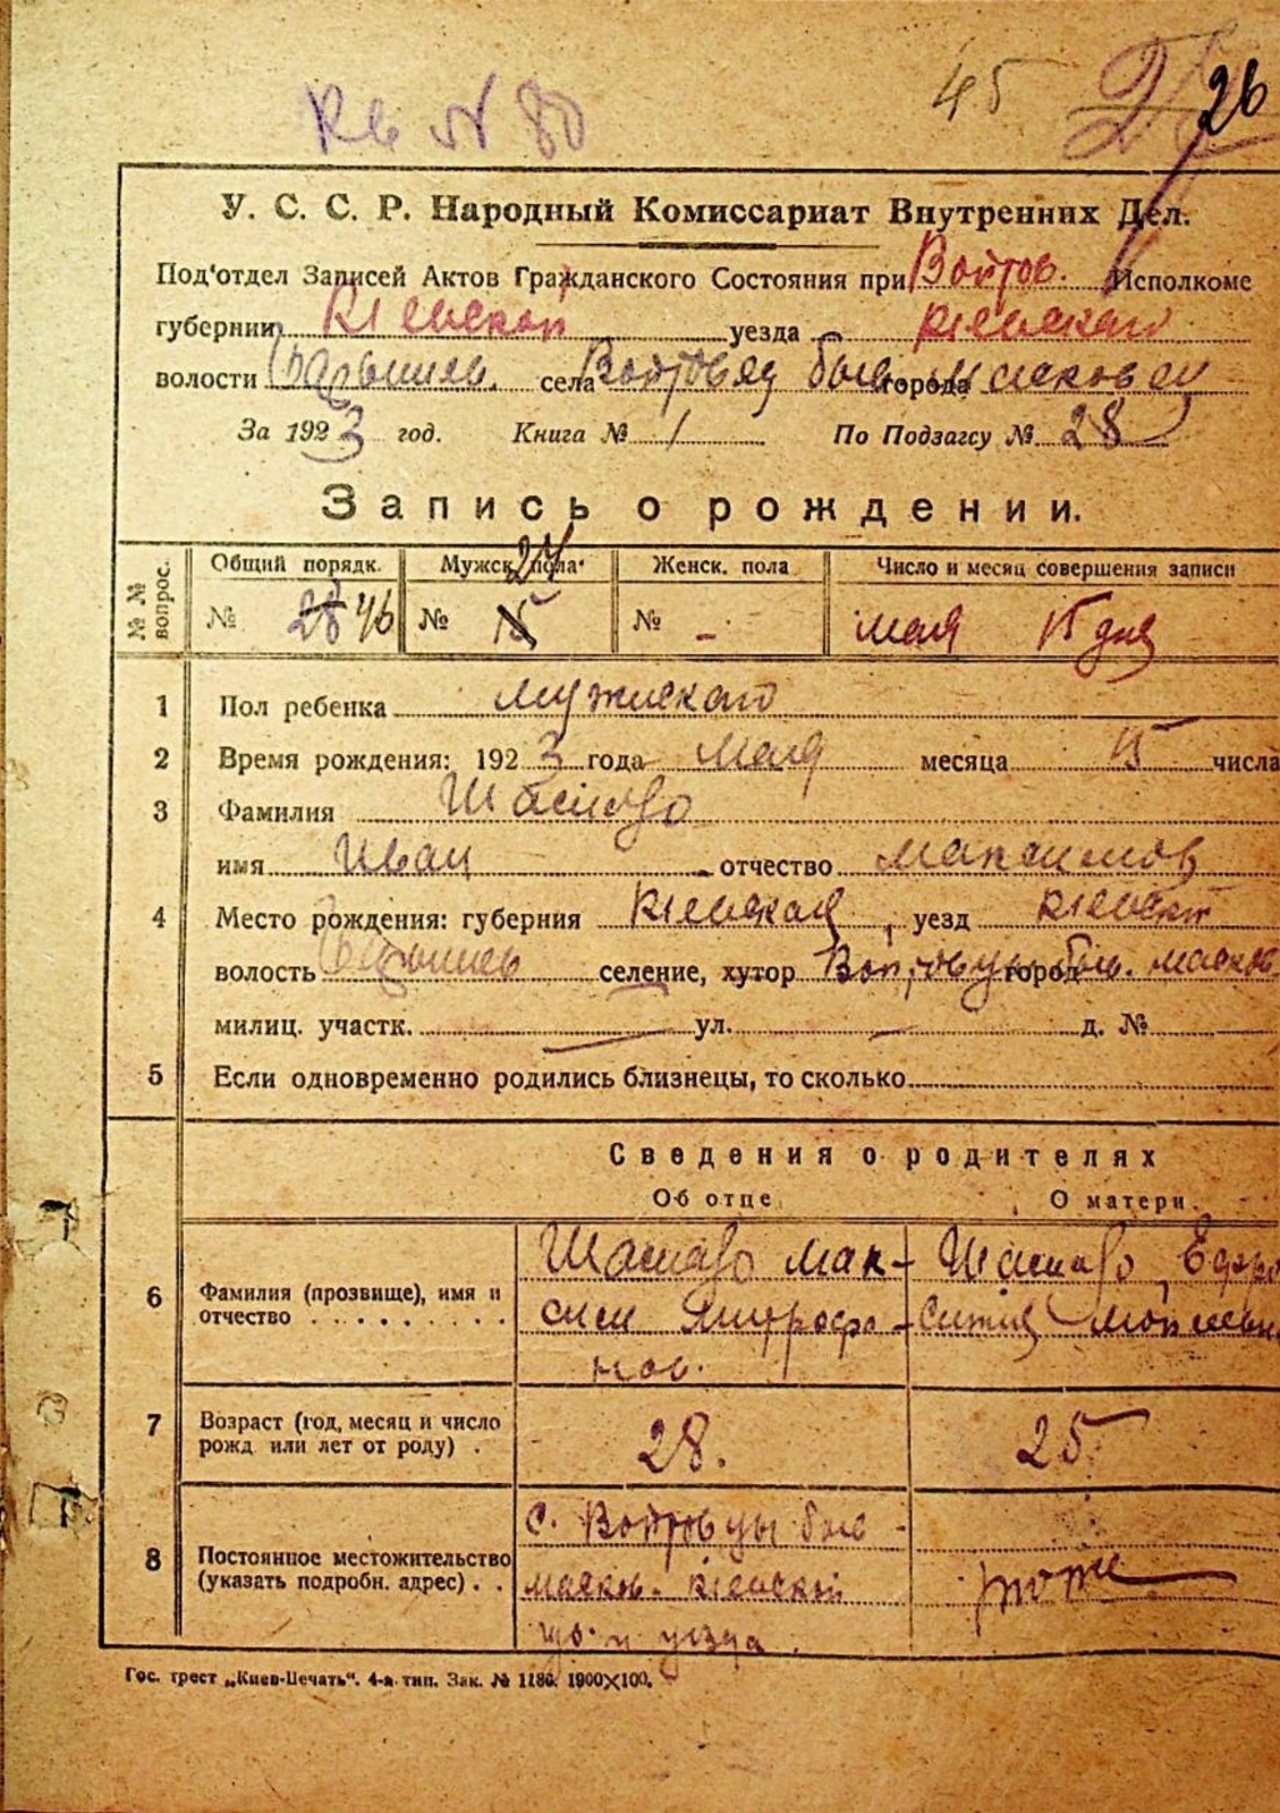 45 26
Кв № 80
У. С. С. Р. Народный Комиссариат Внутренних Дел.
Под'отдел Записей Актов Гражданского Состояния при Войтов. Исполкоме
губернии Кіевской уезда Кіевскаго
волости Барышев. села Войтовец быв. города
За 1923 год. Книга № 1 По Подзагсу № 28
Запись о рождении.
№№ вопрос. Общий порядк. Мужск. пола Женск. пола Число и месяц совершения записи
27
№ 28 46 № 15 № - мая 15 дня
1 Пол ребенка мужескаго
2 Время рождения: 1923 года мая месяца 15 числа
3 Фамилия
имя Иван отчество Максимов
4 Место рождения: губерния Кіевская, уезд Кіевск
волость Барышев селение, хутор Войтовцы город быв.
милиц. участк. — ул. — д. №
5 Если одновременно родились близнецы, то сколько
Сведения о родителях
Об отце О матери.
6 Фамилия (прозвище), имя и отчество . . . . . . . . .
Мак-
сим Митрофа-
нов.
Ефро
синия Моисеевн
7 Возраст (год, месяц и число рожд или лет от роду) . 28. 25
8 Постоянное местожительство (указать подробн. адрес) . .
с. Войтовцы быв
Кіевской
губ. и уезда.
тоже
Гос. трест „Киев-Печать". 4-я тип. Зак. № 1186. 1900×100.